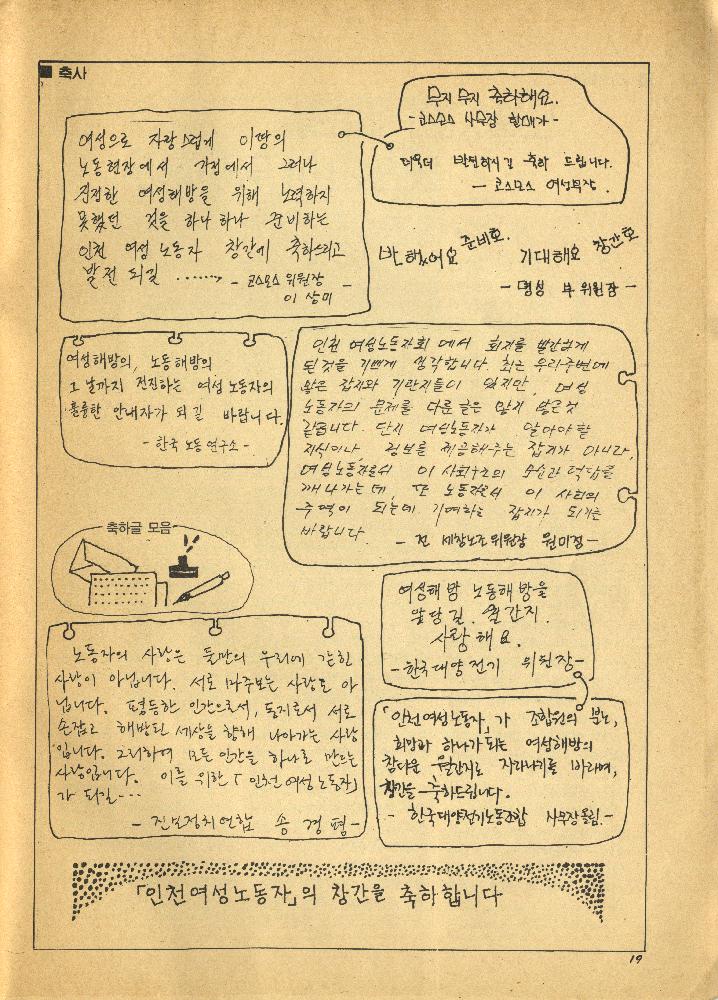 ■ 축사
여성으로 자랑스럽게 이땅의
노동현장에서 가정에서 그러나
진정한 여성해방을 위해 노력하지
못했던 것을 하나 하나 준비하는
인천 여성 노동자 창간에 축하드리고
발전 되길 ········→
- 코스모스 위원장 -
이 상미
무지 무지 축하해요.
- 코스모스 사무장 할매가 -
더욱더 발전하시길 축하 드립니다.
- 코스모스 여성부장.
반했어요 준비호.
기대해요 창간호
- 명성 부위원장 -
여성해방의, 노동해방의
그 날까지 전진하는 여성 노동자의
훌륭한 안내자가 되길 바랍니다.
- 한국 노동 연구소 -
인천 여성노동자회 에서 회지를 발간하게
된것을 기쁘게 생각합니다. 최근 우리주변에
많은 잡지와 기관지들이 있지만, 여성
노동자의 문제를 다룬 글은 많지 않은것
같습니다. 단지 여성노동자가 알아야할
지식이나 정보를 제공해주는 잡지가 아니라,
여성노동자로서 이 사회구조의 모순과 억압을
깨 나가는데, 또 노동자로서 이 사회의
주역이 되는데 기여하는 잡지가 되기를
바랍니다.
- 전 세창노조위원장 원미정 -
축하글 모음
여성해방 노동해방을
앞당길. 월간지.
사랑해요.
- 한국대양전기 위원장 -
노동자의 사랑은 둘만의 우리에 갇힌
사랑이 아닙니다. 서로 마주보는 사랑도 아
닙니다. 평등한 인간으로서, 동지로서 서로
손잡고 해방된 세상을 향해 나아가는 사랑
입니다. 그리하여 모든 인간을 하나로 만드는
사랑입니다. 이를 위한 「인천여성노동자」
가 되길---
- 진보정치연합 송경평 -
「인천여성노동자」가 조합원의 분노,
희망과 하나가 되는 여성해방의
참다운 월간지로 자라나기를 바라며,
창간을 축하드립니다.
- 한국대양전기노동조합 사무장올림. -
「인천여성노동자」의 창간을 축하합니다
19